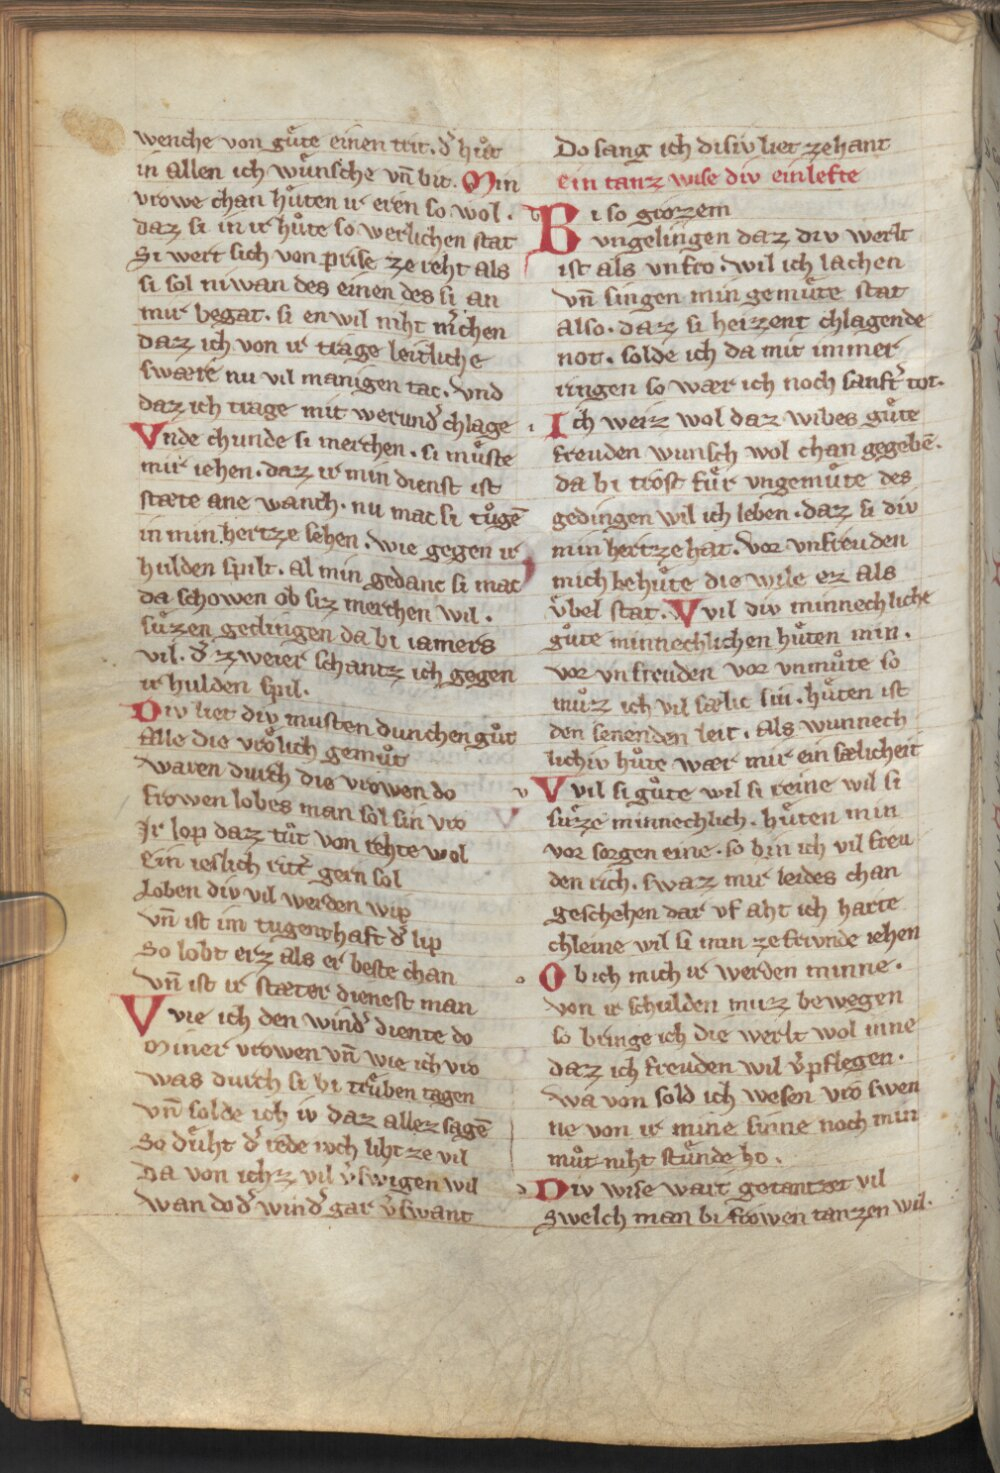 wenche von guͤte einen trit. dˀ huͤt
in allen ich wuͤnsche vn̄ bit. Min
vrowe chan huͤten ir eren so wol.
daz si in ir huͦte so werlichen stat
Si wert sich von prise ze reht als
si sol niwan des einen des si an
mir begat. si en wil niht mˀchen
daz ich von ir trage leitliche
swære nu vil manigen tac. vnd
daz ich trage mit werundˀ chlage
Vnde chunde si merchen. si muͤste
mir iehen. daz ir min dienst ist
stæte ane wanch. nu mac si tuͦgē
in min hertze sehen. wie gegen ir
hulden spilt. al min gedanc si mac
da schowen ob siz merchen wil.
suͤzen gedingen da bi iamers
vil. dˀ zweier schantz ich gegen
ir hulden spil.
Div liet div musten dunchen guͦt
Alle die vroͤlich gemuͦt
waren durch die vrowen do
frowen lobes man sol sin vro
Ir lop daz tuͦt von rehte wol
Ein ieslich rittˀ gern sol
Loben div vil werden wip
vn̄ ist im tugenthaft dˀ lip
So lobt erz als er beste chan
vn̄ ist ir stæter dienest man
Wie ich den windˀ diente do
Miner vrowen vn̄ wie ich vro
was durch si bi truͤben tagen
vn̄ solde ich iv daz allez sagē
So duͤht dˀ rede ivch liht ze vil
Da von ichz vil vˀswigen wil
wan do dˀ windˀ gar vˀswant
Do sang ich disiv liet zehant
ein tanz wise div einlefte
Bi so grozem
vngelingen daz div werlt
ist als vnfro. wil ich lachen
vn̄ singen min gemuͤte stat
also. daz si heizent chlagende
not. solde ich da mit immer
ringen so wær ich noch sanftˀ tot.
Ich weiz wol daz wibes guͤte
freuden wunsch wol chan gegebē.
da bi trost fuͤr vngemuͤte des
gedingen wil ich leben. daz si div
min hertze hat. vor vnfreuden
mich behuͤte die wile ez als
vͤbel stat. Wil div minnechliche
guͤte minnechlichen huͤten min.
vor vnfreuden vor vnmuͤte so
muͦz ich vil sælic sin. huͤten ist
den senenden leit. als wunnech
lichiv huͦte wær mir ein sælicheit
Wil si guͤte wil si reine wil si
suͤze minnechlich. huͤten min
vor sorgen eine. so bin ich vil freu
den rich. swaz mir leides chan
geschehen dar vf aht ich harte
chleine wil si min ze frivnde iehen
Ob ich mich ir werden minne.
von ir schulden muz bewegen
so bringe ich die werlt wol inne
daz ich freuden wil vˀpflegen.
wa von sold ich wesen vro swen
ne von ir mine sinne noch min
muͦt niht stuͤnde ho.
Div wise wart getantzet vil
Swelch man bi frowen tanzen wil.